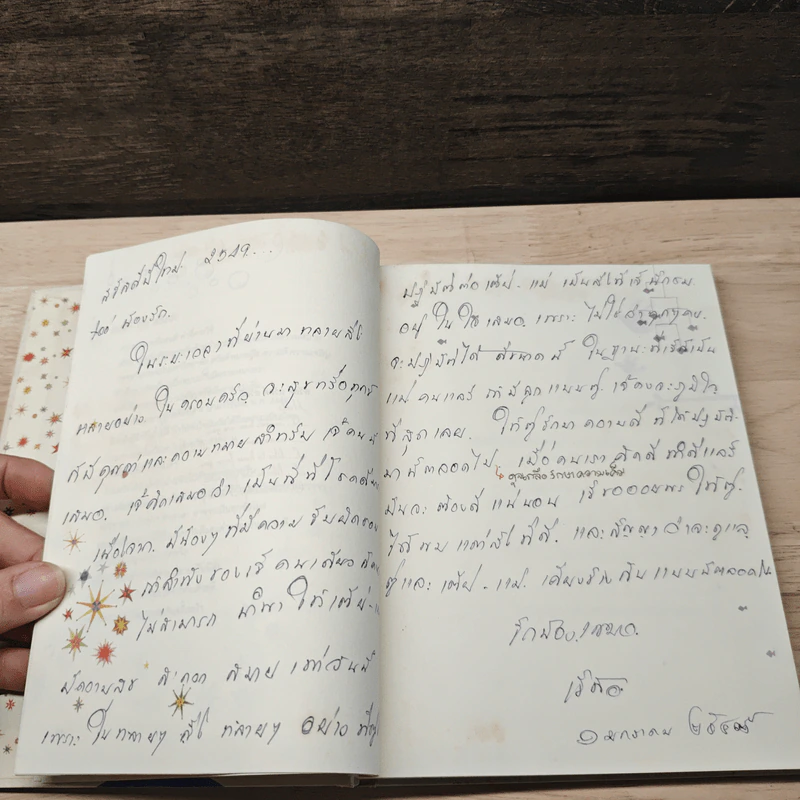 สวัสดีปีใหม่ 2549...
น้องรัก.
ในระยะเวลาที่ผ่านมา หลายสิ่ง
หลายอย่าง ในครอบครัว จะสุขหรือทุกข์
ก็มีคุณค่าและความหมายสำหรับ เจ้คนนี้
เสมอ. เจ้คิดเสมอว่า เป็นพี่ที่โชคดี
เมื่อไร มีน้องๆ ที่มีความ รับผิดชอบ
กำลังของเจ้ คนเดียว
ไม่สามารถ ให้เตี่ย-
มีความสุข สบาย เท่าวันนี้
เพราะ ในหลายๆ สิ่ง หลายๆ อย่าง ที่
ปฏิบัติต่อเตี่ย-แม่ เป็นสิ่งที่เจ้
อยู่ ในใจเสมอ เพราะ ไม่ใช่
จะปฏิบัติได้ ดีขนาดนี้ ในฐานะที่เจ้เป็น
แม่ คนแล้ว ถ้ามีลูกแบบ เจ้คงจะภูมิใจ
ที่สุดเลย. ให้ รักษา ความดี ที่ได้ปฏิบัติ
มานี้ตลอดไป เมื่อคนเรา คิดดี ทำดีแล้ว
รักษาความดี
มันจะ ต้องดี แน่นอน เจ้ขออวยพร ให้
ได้พบ แต่สิ่งที่ดี. และสัญญาว่าจะดูแล
และ เตี่ย-แม่. เคียงข้างกัน แบบนี้ตลอดไป
รักน้องเสมอ.
๑ มกราคม ๒๕๔๙